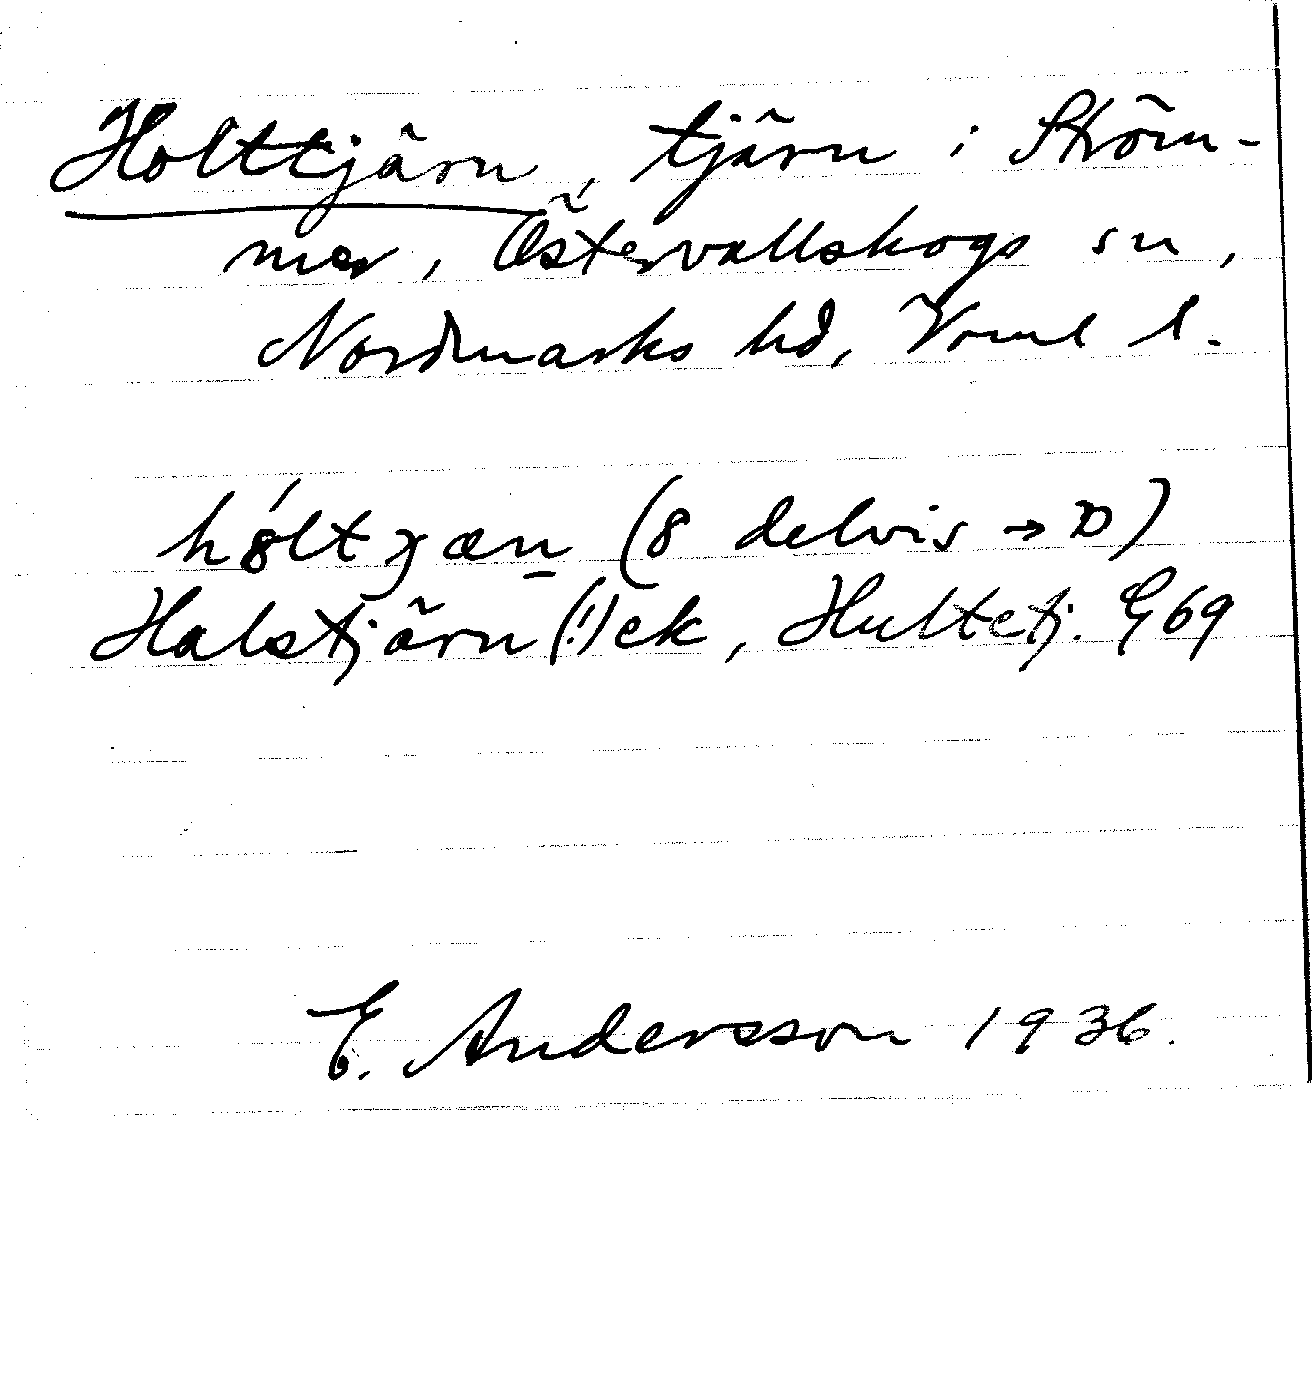 Holttjärn, tjärn i Ström-
mer, Östervallskogs sn,
Nordmarks hd, Verml l.
hó̤ltɟæn (8 delvis → ɒ)
Halstjärn (!) ek, Hultetj. G 69
E. Andersson 1936.